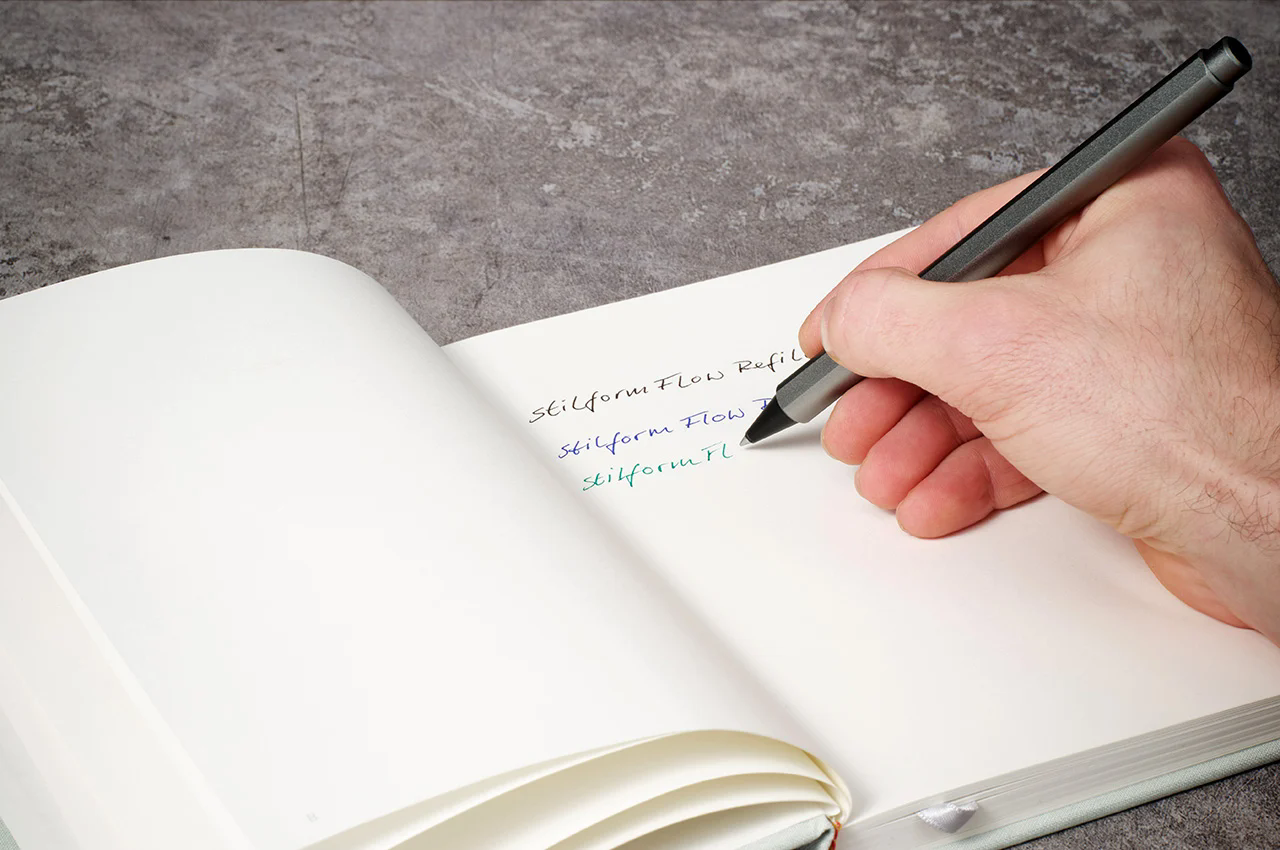 stilform Flow Refil
stilform Flow
stilform Fl